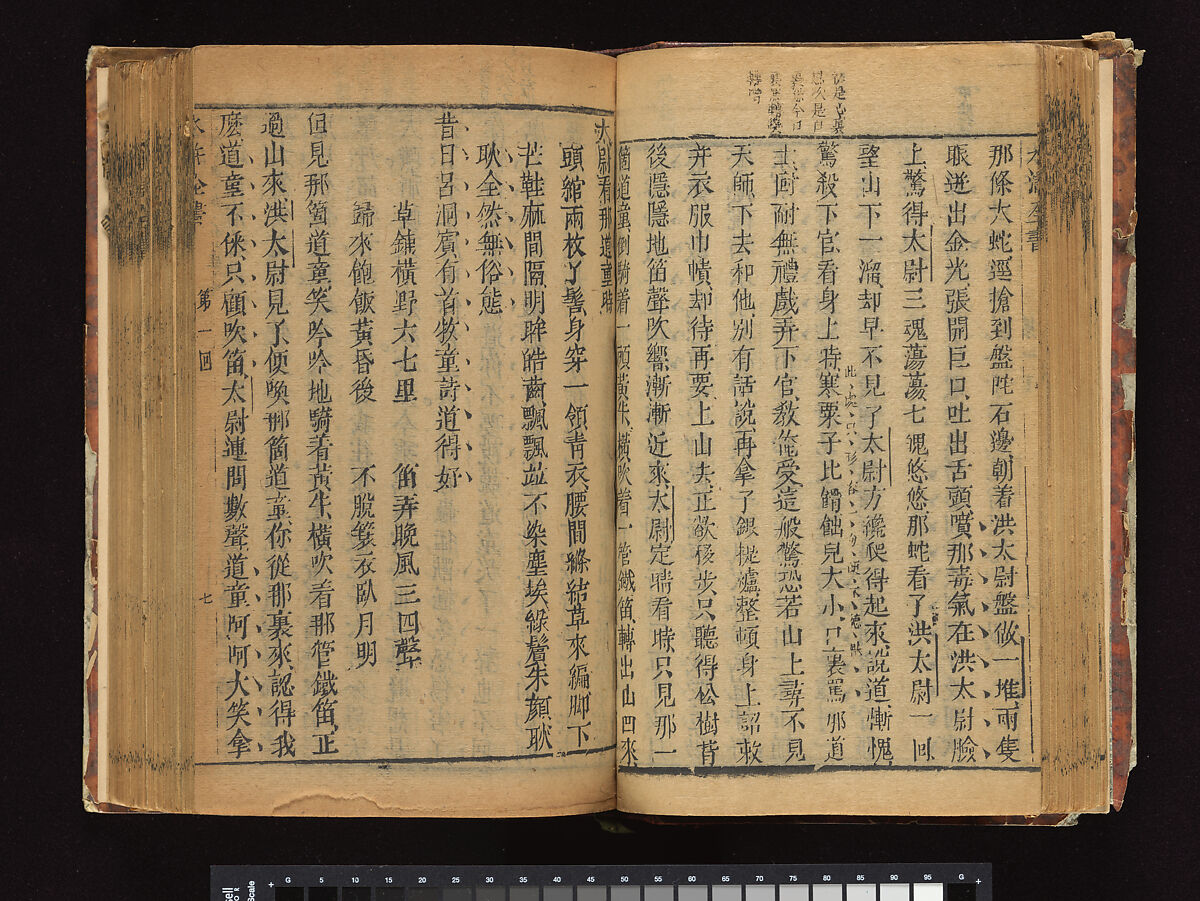 那條大蛇逕搶到盤陀石邊朝着洪太尉盤做一堆兩隻
眼迸出金光張開巨口吐出舌頭噴那毒氣在洪太尉臉
上驚得太尉三魂蕩蕩七魄悠悠那蛇看了洪太尉一回
望山下一溜却早不見了太尉方纔爬得起來説道慚愧
驚殺下官看身上時寒粟子比餶飿兒大小口裏罵那道
士叵耐無禮戲弄下官教俺受這般驚恐若山上尋不見
天師下去和他別有話説再拿了銀提爐整頓身上詔敕
并衣服巾幘却待再要上山去正欲移步只聽得松樹背
後隱隱地笛聲吹響漸漸近來太尉定睛看時只見那一
箇道童倒騎着一頭黃牛橫吹着一管鐵笛轉出山凹來
太尉看那道童時
頭綰兩枚丫髻身穿一領青衣腰間縧結草來編脚下
芒鞋麻間隔明眸皓齒飄飄並不染塵埃綠鬢朱顔耿
耿全然無俗態
昔日呂洞賓有首牧童詩道得好
草鋪橫野六七里　笛弄晚風三四聲
歸來飽飯黃昏後　不脫簑衣臥月明
但見那箇道童笑吟吟地騎着黃牛橫吹着那管鐵笛正
過山來洪太尉見了便喚那箇道童你從那裏來認得我
麽道童不倸只顧吹笛太尉連問數聲道童呵呵大笑拿
第一回
七
G 5 10 15 20 25 30 35 40 45 50 55 60 65 70 75 80 85 90 95 G
Scale